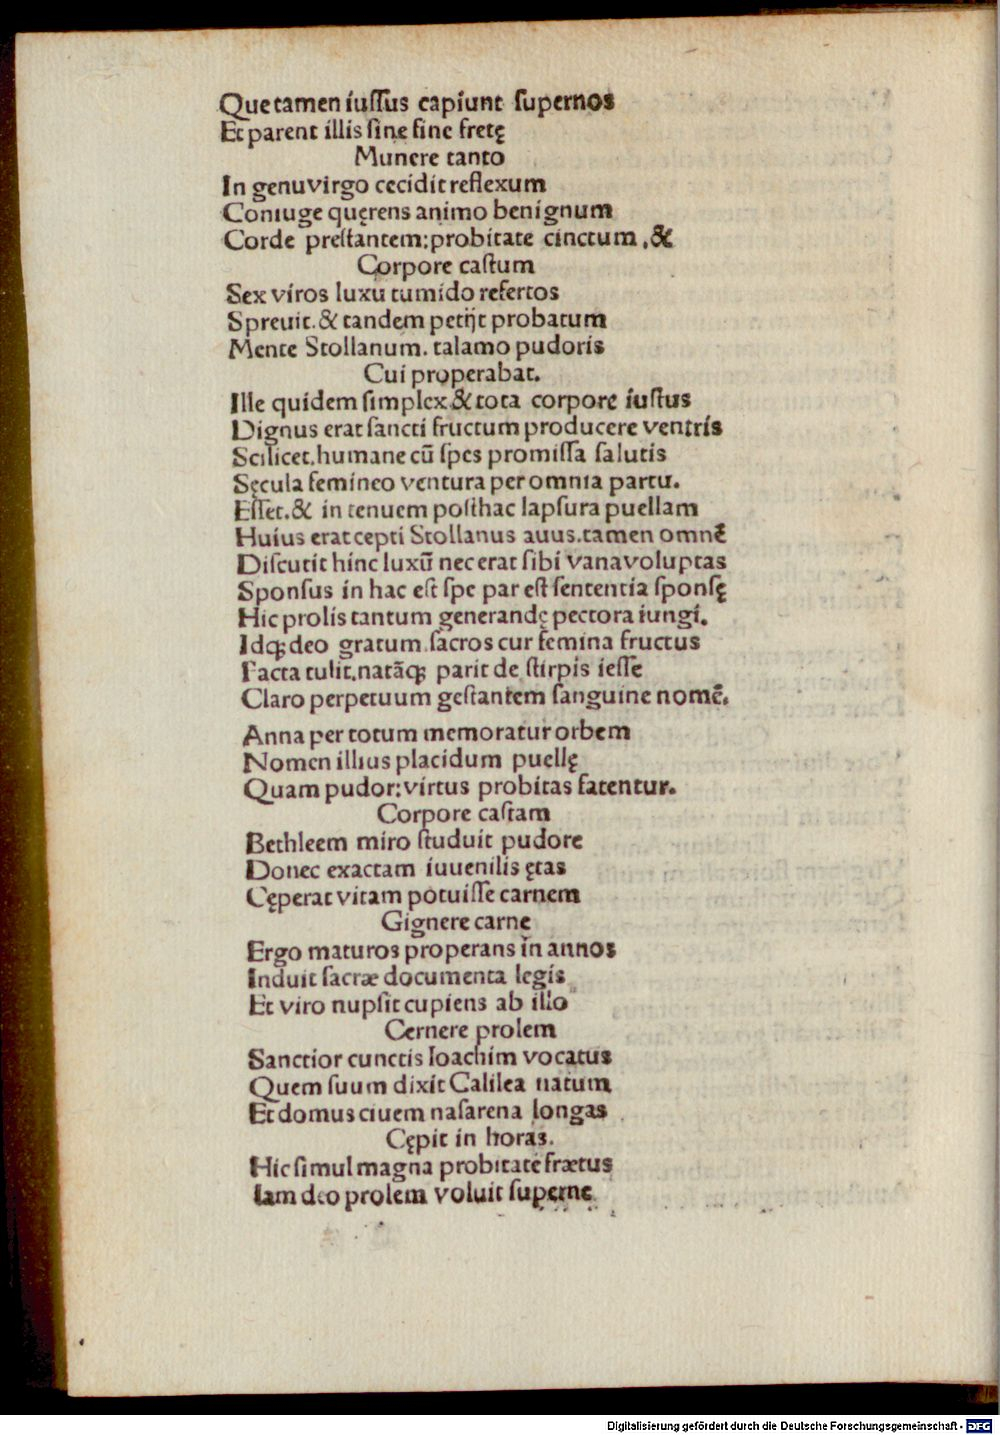 Que tamen iuſſus capiunt ſupernos
Et parent illis ſine fine fretę
Munere tanto
In genu virgo cecidit reflexum
Coniuge quęrens animo benignum
Corde preſtantem: probitate cinctum, &
Corpore caſtum
Sex viros luxu tumido refertos
Spreuit. & tandem petijt probatum
Mente Stollanum. talamo pudoris
Cui properabat.
Ille quidem ſimplex & tota corpore iuſtus
Dignus erat ſancti fructum producere ventris
Scilicet, humane cū ſpes promiſſa ſalutis
Sęcula femineo ventura per omnia partu.
Eſſet. & in tenuem poſthac lapſura puellam
Huius erat cepti Stollanus auus. tamen omnē
Diſcutit hinc luxū nec erat ſibi vana voluptas
Sponſus in hac eſt ſpe par eſt ſententia ſponſę
Hic prolis tantum generandę pectora iungi.
Idqꝫ deo gratum ſacros cur femina fructus
Facta tulit. natāqꝫ parit de ſtirpis ieſſe
Claro perpetuum geſtantem ſanguine nomē.
Anna per totum memoratur orbem
Nomen illius placidum puellę
Quam pudor: virtus probitas fatentur.
Corpore caſtam
Bethleem miro ſtuduit pudore
Donec exactam iuuenilis ętas
Cęperat vitam potuiſſe carnem
Gignere carne
Ergo maturos properans in annos
Induit ſacræ documenta legis
Et viro nupſit cupiens ab illo
Cernere prolem
Sanctior cunctis Ioachim vocatus
Quem ſuum dixit Galilea natum
Et domus ciuem naſarena longas
Cępit in horas.
Hic ſimul magna probitate frætus
Iam deo prolem voluit ſuperne
Digitalisierung gefördert durch die Deutsche Forschungsgemeinschaft - DFG